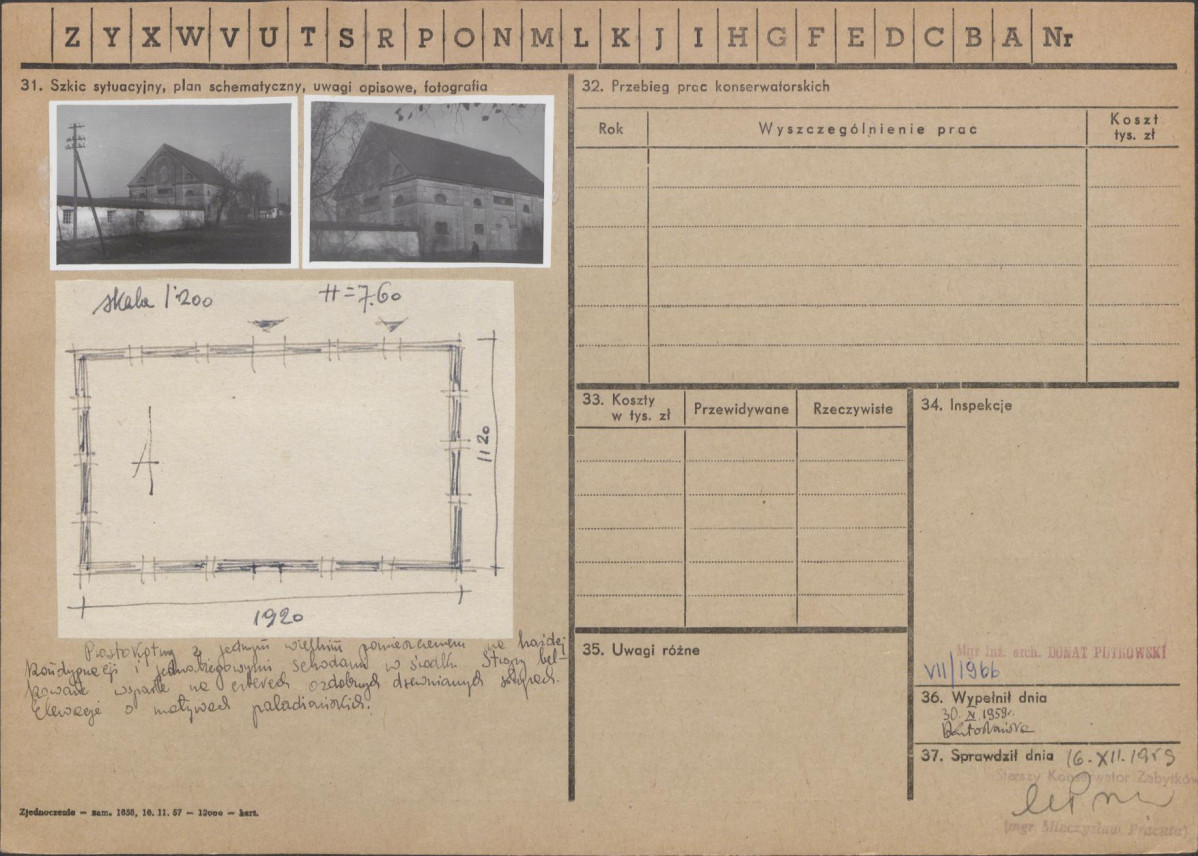 Z Y X W V U T S R P O N M L K J I H G F E D C B A Nr
31. Szkic sytuacyjny, plan schematyczny, uwagi opisowe, fotografia
skala 1:200 H=7.60
1120
1920
Prostokątny z jednym wielkim pomieszczeniem na każdej
kondygnacji i jednobiegowymi schodami w środku. Stropy bel-
kowane wsparte na czterech ozdobnych drewnianych słupach.
Elewacje o motywach paladiańskich.
Zjednoczenie — zam. 1858, 16. 11. 57 — 12000 — kart.
32. Przebieg prac konserwatorskich
Rok Wyszczególnienie prac Koszt
tys. zł
33. Koszty
w tys. zł Przewidywane Rzeczywiste
34. Inspekcje
Mgr inż. arch. DONAT PUTKOWSKI
VII/1966
35. Uwagi różne
36. Wypełnił dnia
30. XI 1959r.
37. Sprawdził dnia 16.XII.1959
Starszy Konserwator Zabytków
(mgr Mieczysław